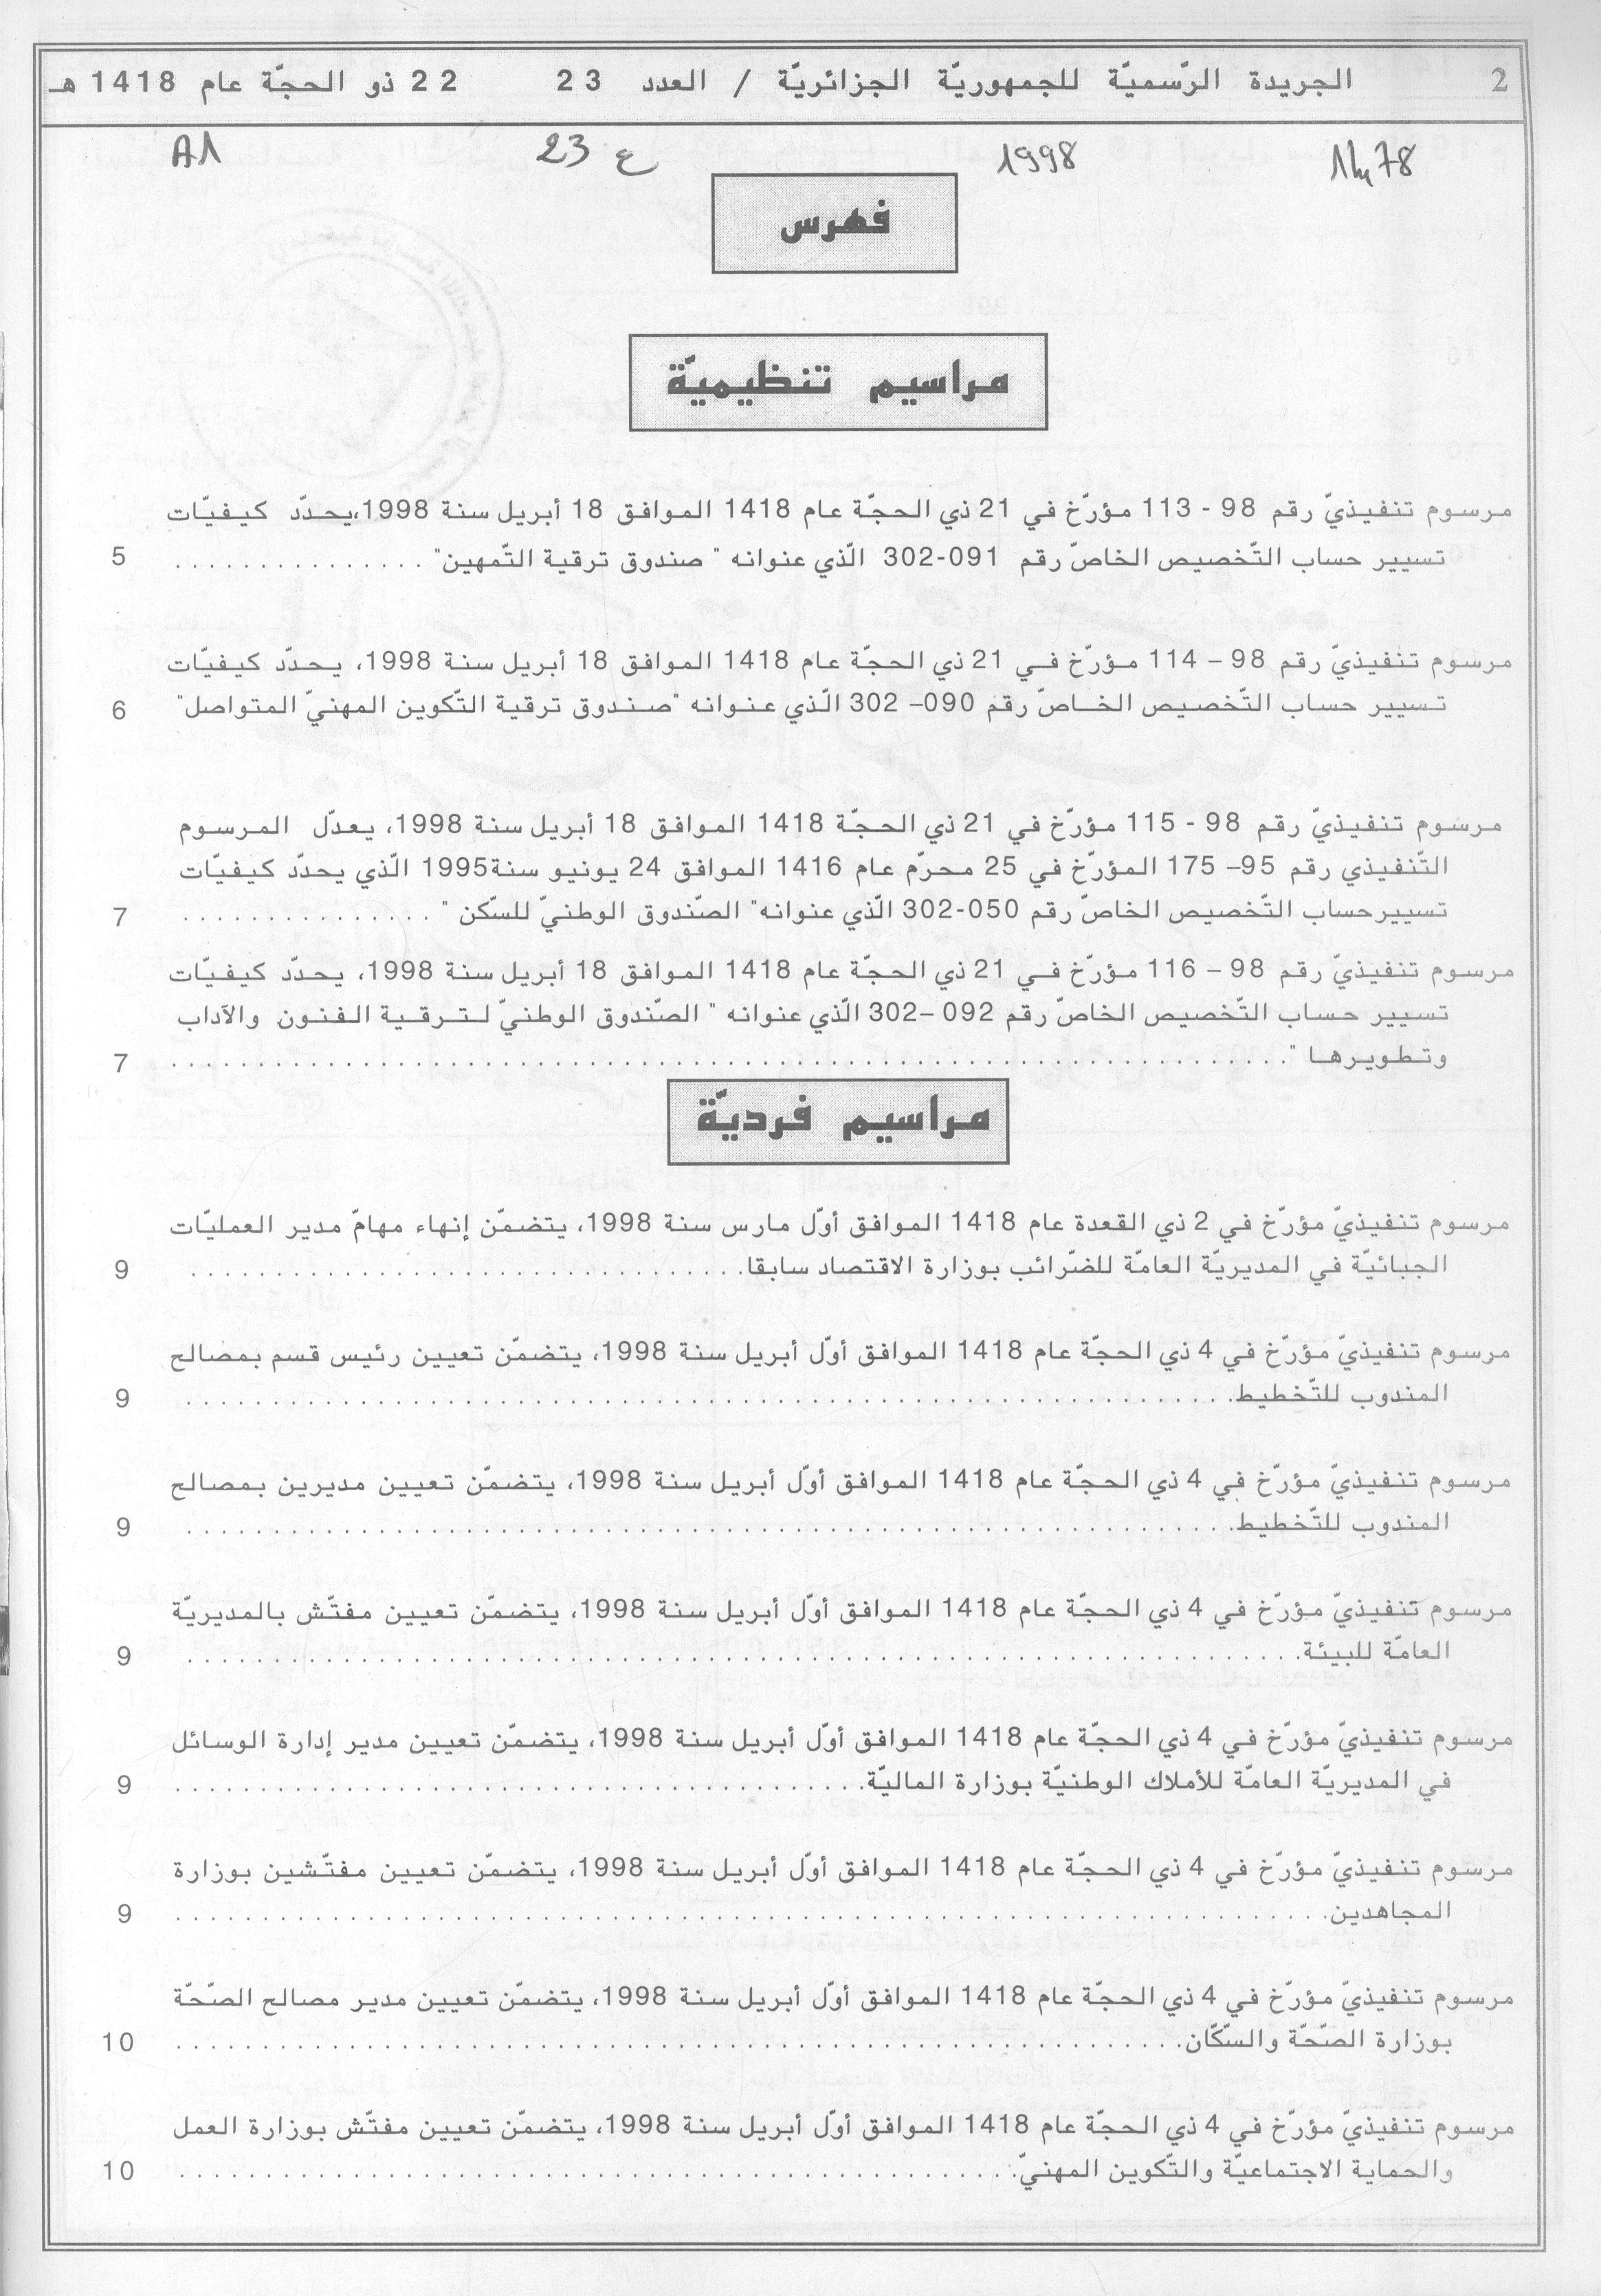 2 الجريدة الرّسميّة للجمهوريّة الجزائريّة / العدد 23 22 ذو الحجّة عام 1418 هـ
1998 23 ع A1
فهرس
مراسيم تنظيميّة
مرسوم تنفيذيّ رقم 98 - 113 مؤرّخ في 21 ذي الحجّة عام 1418 الموافق 18 أبريل سنة 1998،يحدّد كيفيّات
تسيير حساب التّخصيص الخاصّ رقم 091-302 الّذي عنوانه " صندوق ترقية التّمهين" . . . . . . . . . . . . . . . 5
مرسوم تنفيذيّ رقم 98 – 114 مؤرّخ في 21 ذي الحجّة عام 1418 الموافق 18 أبريل سنة 1998، يحدّد كيفيّات
تسيير حساب التّخصيص الخاصّ رقم 090– 302 الّذي عنوانه "صندوق ترقية التّكوين المهنيّ المتواصل" 6
مرسوم تنفيذيّ رقم 98 - 115 مؤرّخ في 21 ذي الحجّة 1418 الموافق 18 أبريل سنة 1998، يعدّل المرسوم
التّنفيذي رقم 95– 175 المؤرّخ في 25 محرّم عام 1416 الموافق 24 يونيو سنة1995 الّذي يحدّد كيفيّات
تسييرحساب التّخصيص الخاصّ رقم 050-302 الّذي عنوانه" الصّندوق الوطنيّ للسّكن " . . . . . . . . . . . . . . . 7
مرسوم تنفيذيّ رقم 98 – 116 مؤرّخ في 21 ذي الحجّة عام 1418 الموافق 18 أبريل سنة 1998، يحدّد كيفيّات
تسيير حساب التّخصيص الخاصّ رقم 092 –302 الّذي عنوانه " الصّندوق الوطنيّ لترقية الفنون والآداب
وتطويرها ". . . . . . . . . . . . . . . . . . . . . . . . . . . . . . 7
مراسيم فرديّة
مرسوم تنفيذيّ مؤرّخ في 2 ذي القعدة عام 1418 الموافق أوّل مارس سنة 1998، يتضمّن إنهاء مهامّ مدير العمليّات
الجبائيّة في المديريّة العامّة للضّرائب بوزارة الاقتصاد سابقا. . . . . . . . . . . . . . . . . . . . 9
مرسوم تنفيذيّ مؤرّخ في 4 ذي الحجّة عام 1418 الموافق أوّل أبريل سنة 1998، يتضمّن تعيين رئيس قسم بمصالح
المندوب للتّخطيط. . . . . . . . . . . . . . . . . . . . . . . . . . . . . . 9
مرسوم تنفيذيّ مؤرّخ في 4 ذي الحجّة عام 1418 الموافق أوّل أبريل سنة 1998، يتضمّن تعيين مديرين بمصالح
المندوب للتّخطيط. . . . . . . . . . . . . . . . . . . . . . . . . . . . . . 9
مرسوم تنفيذيّ مؤرّخ في 4 ذي الحجّة عام 1418 الموافق أوّل أبريل سنة 1998، يتضمّن تعيين مفتّش بالمديريّة
العامّة للبيئة. . . . . . . . . . . . . . . . . . . . . . . . . . . . . . 9
مرسوم تنفيذيّ مؤرّخ في 4 ذي الحجّة عام 1418 الموافق أوّل أبريل سنة 1998، يتضمّن تعيين مدير إدارة الوسائل
في المديريّة العامّة للأملاك الوطنيّة بوزارة الماليّة. . . . . . . . . . . . . . . . . . . . 9
مرسوم تنفيذيّ مؤرّخ في 4 ذي الحجّة عام 1418 الموافق أوّل أبريل سنة 1998، يتضمّن تعيين مفتّشين بوزارة
المجاهدين. . . . . . . . . . . . . . . . . . . . . . . . . . . . . . 9
مرسوم تنفيذيّ مؤرّخ في 4 ذي الحجّة عام 1418 الموافق أوّل أبريل سنة 1998، يتضمّن تعيين مدير مصالح الصّحّة
بوزارة الصّحّة والسّكّان. . . . . . . . . . . . . . . . . . . . . . . . . 10
مرسوم تنفيذيّ مؤرّخ في 4 ذي الحجّة عام 1418 الموافق أوّل أبريل سنة 1998، يتضمّن تعيين مفتّش بوزارة العمل
والحماية الاجتماعيّة والتّكوين المهنيّ. . . . . . . . . . . . . . . . . . . . 10